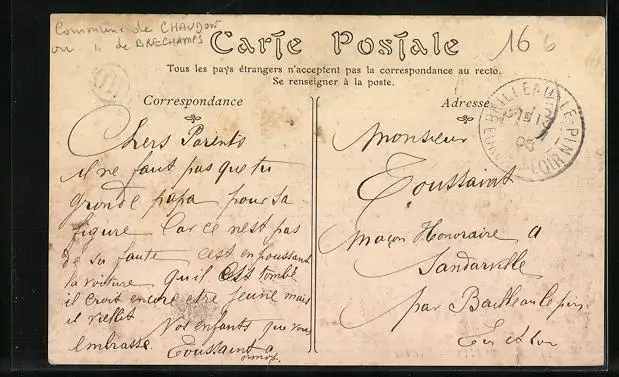 Commune de CHAUDON
ou " de BRECHAMPS
Carte Postale
166
Tous les pays étrangers n'acceptent pas la correspondance au recto.
Se renseigner à la poste.
Correspondance
Chers Parents
il ne faut pas que tu
gronde papa pour sa
figure Car ce nest pas
de sa faute cest en poussant
la voiture quil est tombé
il croit encore etre jeune mais
il viellet
Vos enfants que vous
embrasse. Toussaint a
Adresse
Monsieur
Toussaint
maçon Honoraire a
Sandarville
par Bailleau le pin
Eur et Loir
BAILLEAU-LE-PIN
EURE
LOIR
06